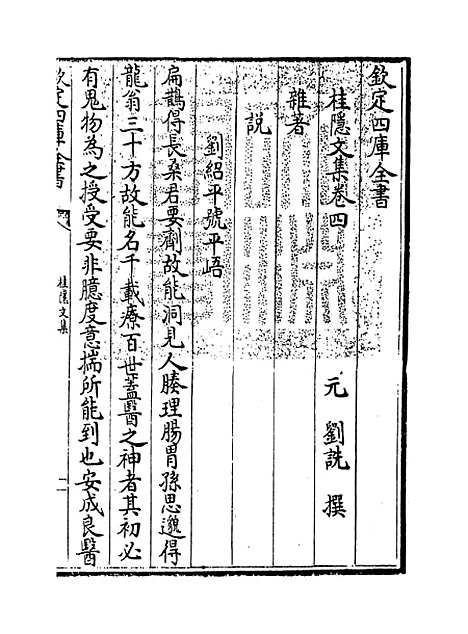 欽定四庫全書
桂隱文集卷四
元 劉詵 撰
雜著
說
劉紹平號平峿
扁鵲得長桑君要劑故能洞見人腠理腸胃孫思邈得
龍翁三十方故能名千載療百世蓋醫之神者其初必
有鬼物為之授受要非臆度意揣所能到也安成良醫
欽定四庫全書
桂隱文集